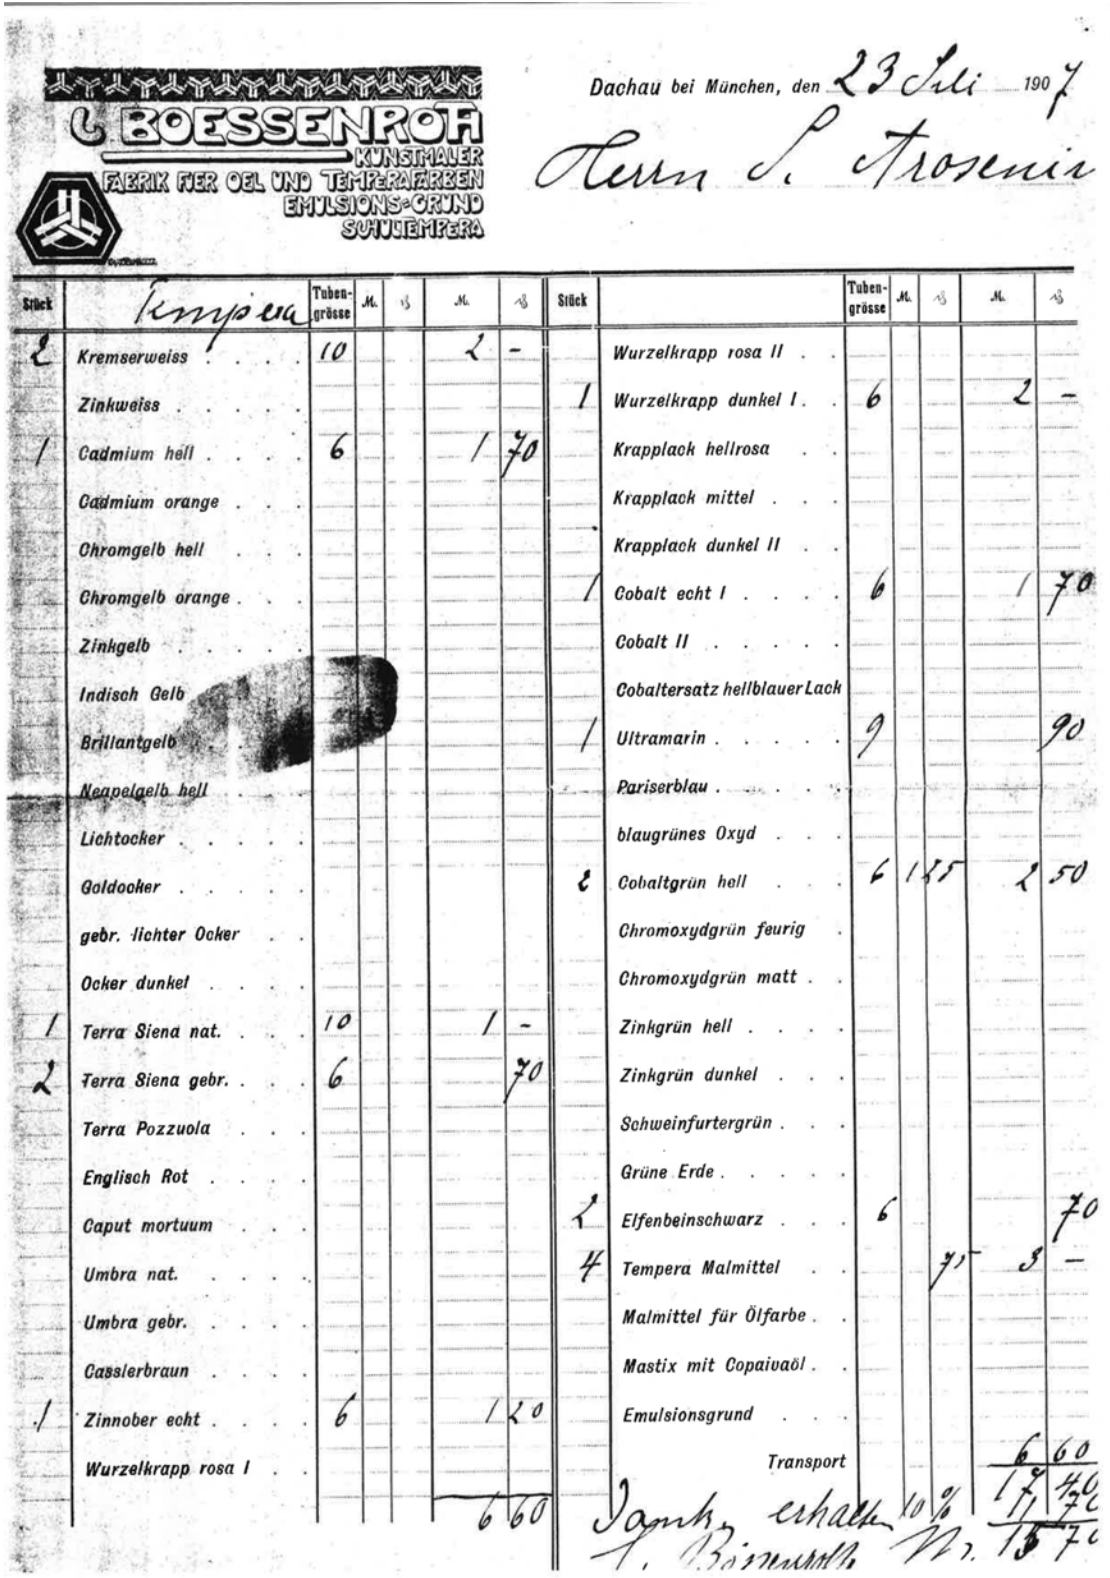 C BOESSENROTH
KUNSTMALER
FABRIK FUER OEL UND TEMPERAFARBEN
EMULSIONS=GRUND
SCHULTEMPERA
Dachau bei München, den 23 Juli 1907
Herrn
Stück Tempera Tuben-grösse M. ₰ M. ₰
2 Kremserweiss . . . . 10 2 -
Zinkweiss . . . . .
1 Cadmium hell . . . . 6 1 70
Cadmium orange . . .
Chromgelb hell . . .
Chromgelb orange . . .
Zinkgelb . . . . .
Indisch Gelb
Brillantgelb
Neapelgelb hell
Lichtocker . . . . .
Goldocker . . . . .
gebr. lichter Ocker . .
Ocker dunkel . . . .
1 Terra Siena nat. . . . 10 1 -
2 Terra Siena gebr. . . . 6 70
Terra Pozzuola . . .
Englisch Rot . . . .
Caput mortuum . . .
Umbra nat. . . . .
Umbra gebr. . . . .
Casslerbraun . . . .
1 Zinnober echt . . . . 6 1 20
Wurzelkrapp rosa I . .
6 60
Stück Tuben-grösse M. ₰ M. ₰
Wurzelkrapp rosa II . .
1 Wurzelkrapp dunkel I . . 6 2 -
Krapplack hellrosa . .
Krapplack mittel . . .
Krapplack dunkel II . .
1 Cobalt echt I . . . . 6 1 70
Cobalt II . . . . .
Cobaltersatz hellblauer Lack
1 Ultramarin . . . . . 9 90
Pariserblau . . . . .
blaugrünes Oxyd . . .
2 Cobaltgrün hell . . . 6 1 25 2 50
Chromoxydgrün feurig .
Chromoxydgrün matt . .
Zinkgrün hell . . . .
Zinkgrün dunkel . . .
Schweinfurtergrün . . .
Grüne Erde . . . . .
2 Elfenbeinschwarz . . . 6 70
4 Tempera Malmittel . . 75 3 -
Malmittel für Ölfarbe . .
Mastix mit Copaivaöl . .
Emulsionsgrund . . .
Transport 6 60
17 40
Dank erhalten 10 %
15 70